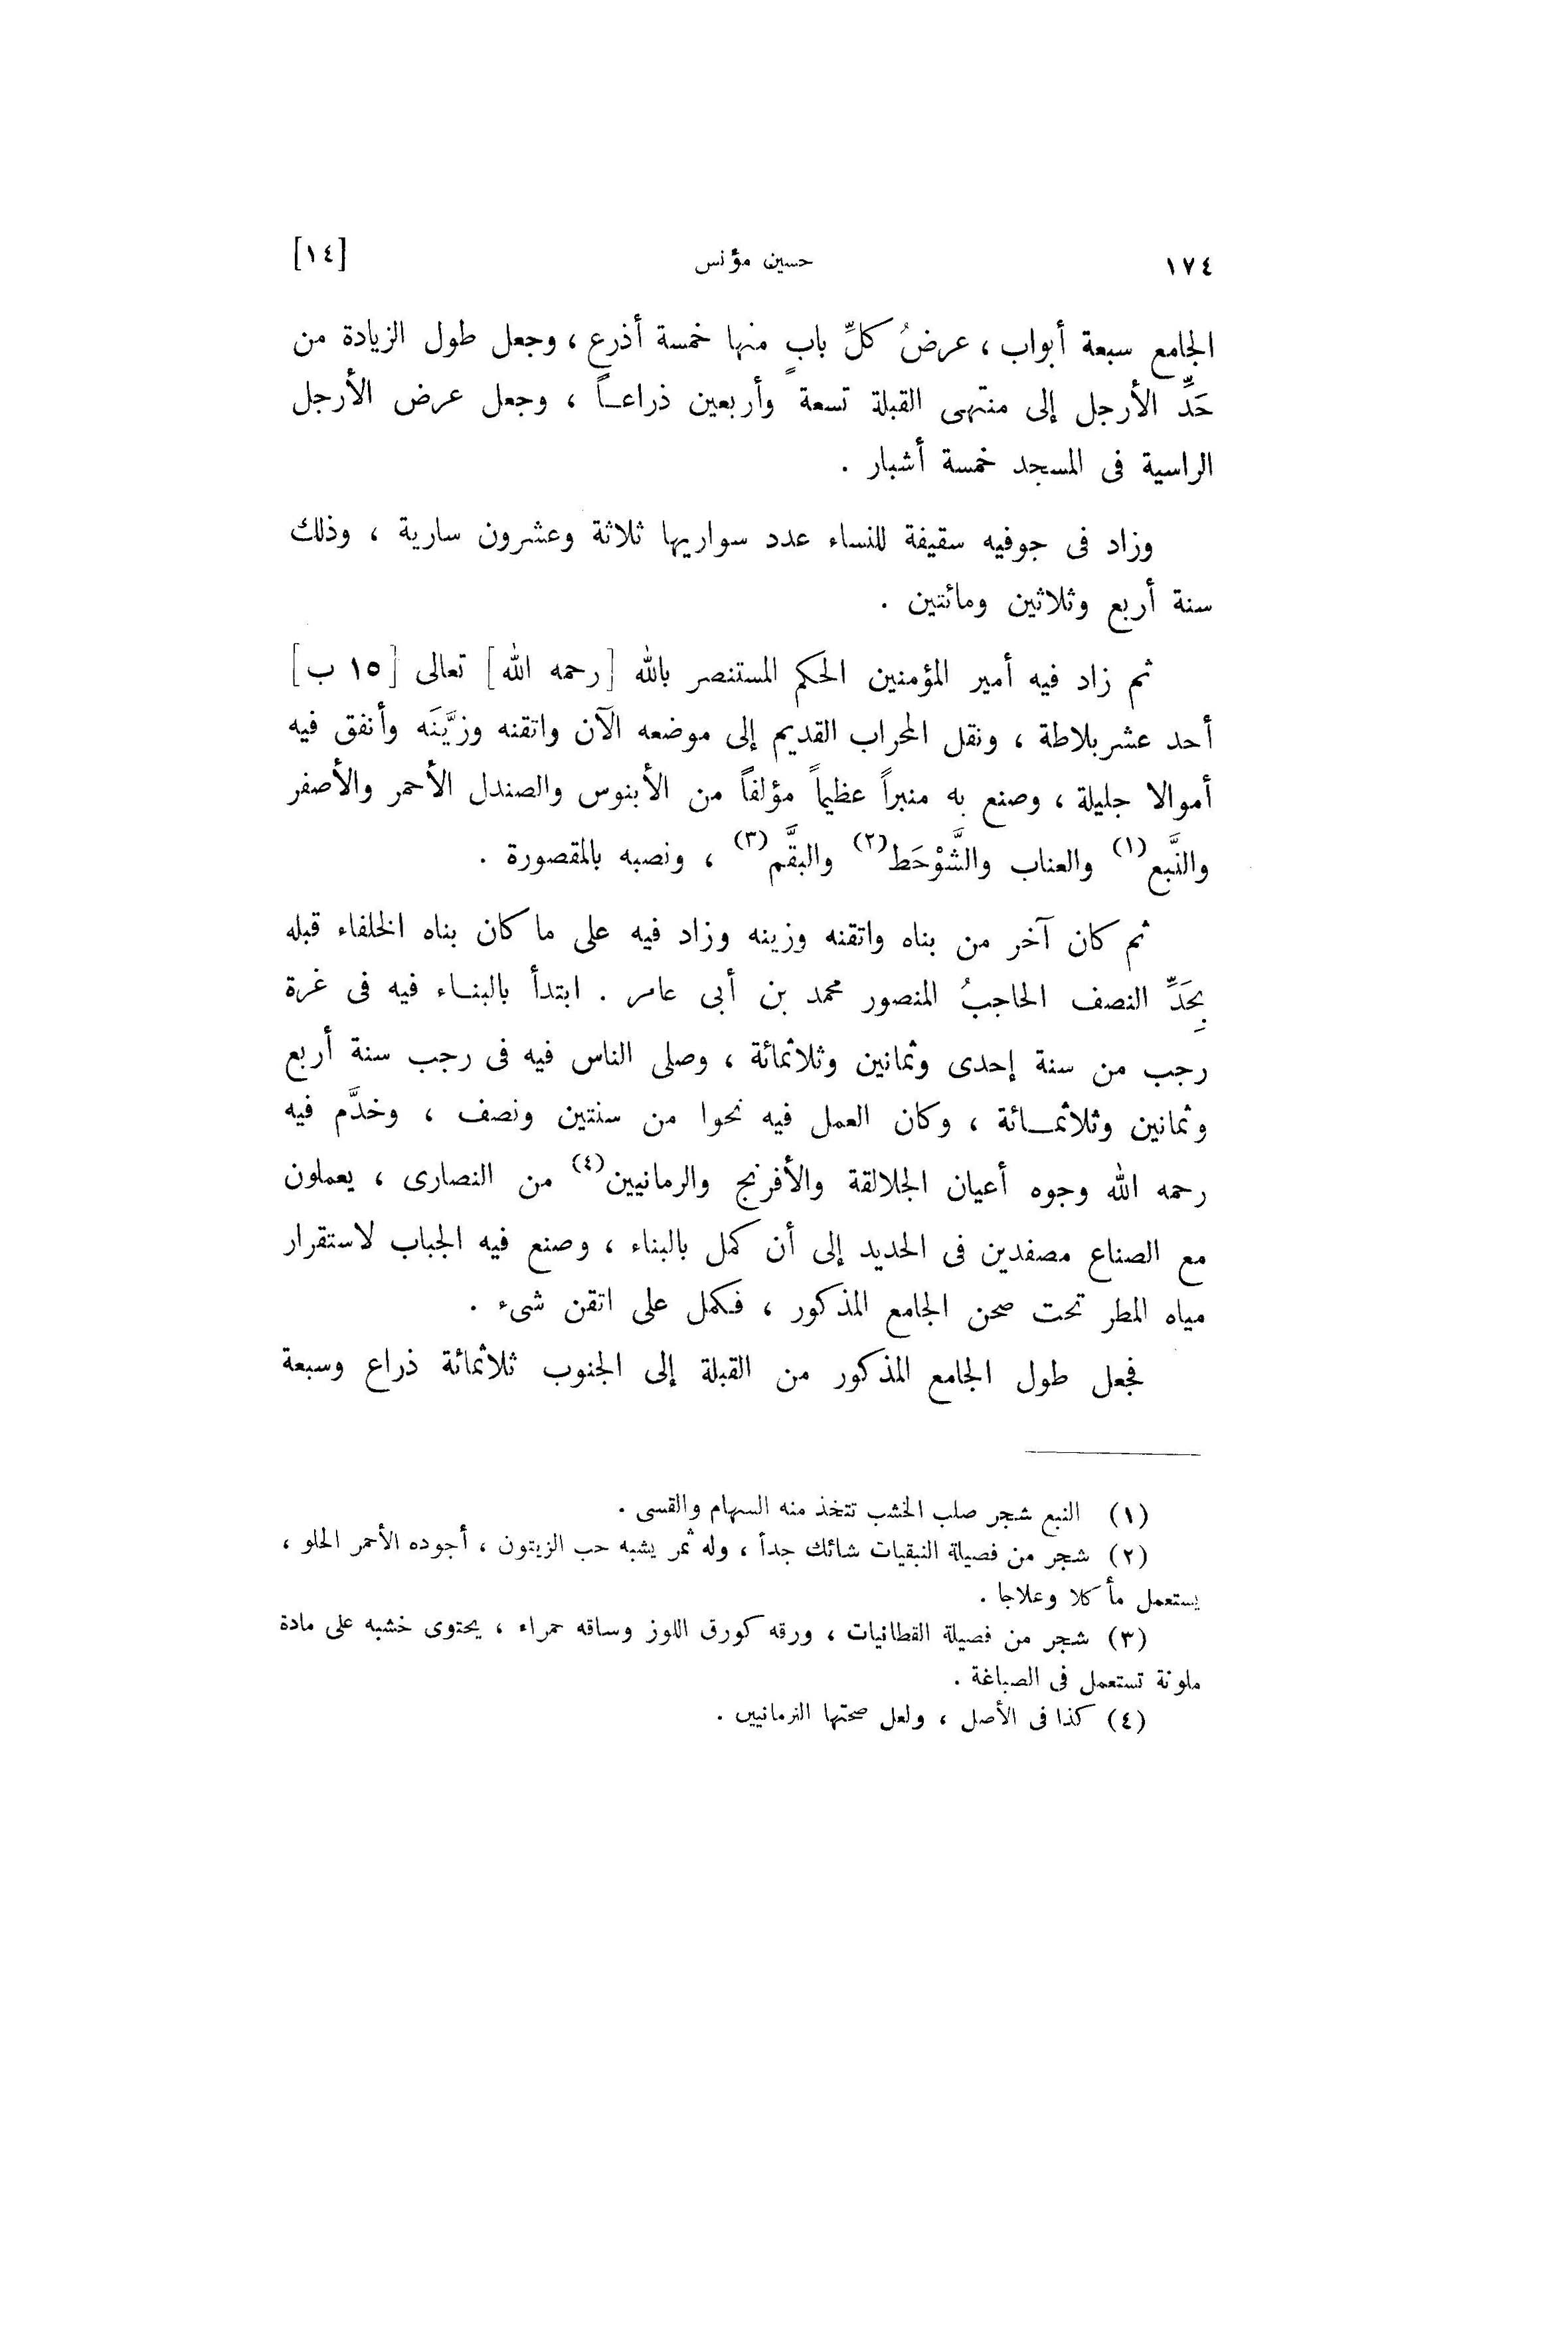 ١٧٤ حسين مؤنس [١٤]
الجامع سبعة أبواب، عرضُ كلِّ بابٍ منها خمسة أذرع، وجعل طول الزيادة من
حَدِّ الأرجل إلى منتهى القبلة تسعة وأربعين ذراعـاً ، وجعل عرض الأرجل
الراسية فى المسجد خمسة أشبار .
وزاد فى جوفيه سقيفة للنساء عدد سواريها ثلاثة وعشرون سارية ، وذلك
سنة أربع وثلاثين ومائتين .
ثم زاد فيه أمير المؤمنين الحكم المستنصر بالله [رحمه الله] تعالى [١٥ ب]
أحد عشر بلاطة ، ونقل المحراب القديم إلى موضعه الآن واتقنه وزيَّنَه وأنفق فيه
أموالا جليلة ، وصنع به منبراً عظيماً مؤلفاً من الأبنوس والصندل الأحمر والأصفر
والنَّبع(١) والعناب والشَّوْحَط(٢) والبقَّم(٣) ، ونصبه بالمقصورة .
ثم كان آخر من بناه واتقنه وزينه وزاد فيه على ما كان بناه الخلفاء قبله
بِحَدِّ النصف الحاجبُ المنصور محمد بن أبى عامر . ابتدأ بالبنـاء فيه فى غرة
رجب من سنة إحدى وثمانين وثلاثمائة ، وصلى الناس فيه فى رجب سنة أربع
وثمانين وثلاثمـائة ، وكان العمل فيه نحوا من سنتين ونصف ، وخدَّم فيه
رحمه الله وجوه أعيان الجلالقة والأفرنج والرمانيين(٤) من النصارى ، يعملون
مع الصناع مصفدين فى الحديد إلى أن كمل بالبناء ، وصنع فيه الجباب لاستقرار
مياه المطر تحت صحن الجامع المذكور ، فكمل على اتقن شىء .
فجعل طول الجامع المذكور من القبلة إلى الجنوب ثلاثمائة ذراع وسبعة
(١) النبع شجر صلب الخشب تتخذ منه السهام والقسى .
(٢) شجر من فصيلة النبقيات شائك جدأ ، وله ثمر يشبه حب الزيتون ، أجوده الأحمر الحلو ،
يستعمل مأ كلا وعلاجا .
(٣) شجر من فصيلة القطانيات ، ورقه كورق اللوز وساقه حمراء ، يحتوى خشبه على مادة
ملونة تستعمل فى الصباغة .
(٤) كذا فى الأصل ، ولعل صحتها النرمانيين .